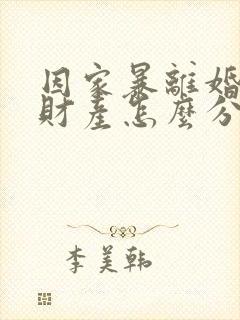 因家暴離婚
財產怎麼分
李美韩